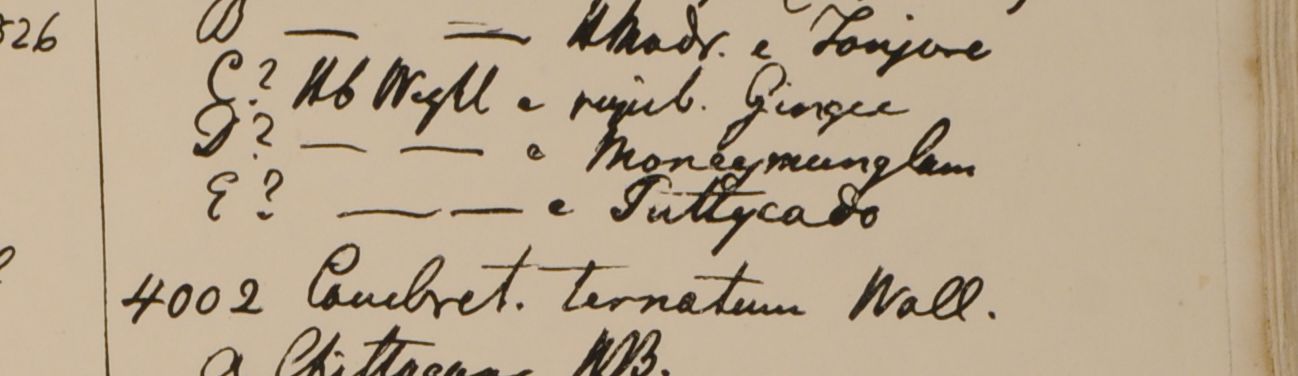 526
B — — HMadr. e Tanjore
C? Hb Wight e rupib. Gingee
D? — — e Moneymunglum
E? — — e Tuttycado
4002 Combret. ternatum Wall.
a Chittagong HB.